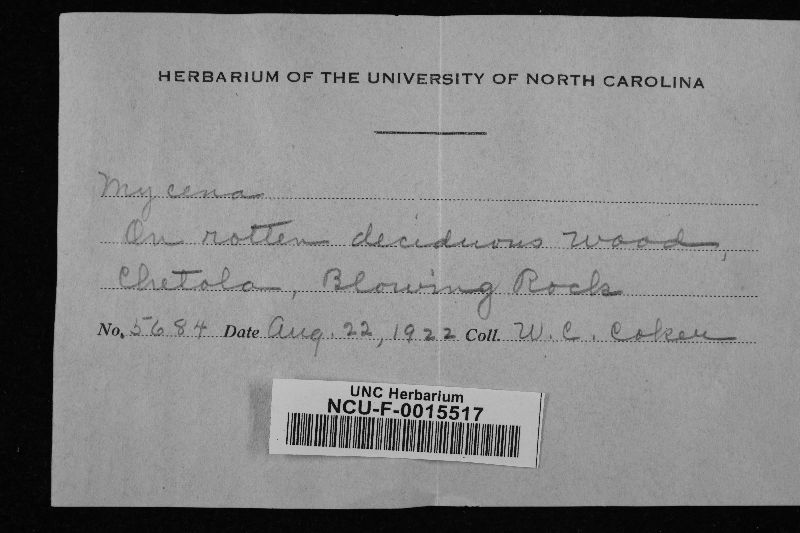 HERBARIUM OF THE UNIVERSITY OF NORTH CAROLINA
Mycena
On rotten deciduous wood,
Chetola, Blowing Rock
No. 5684 Date Aug. 22, 1922 Coll. W. C. Coker
UNC Herbarium
NCU-F-0015517